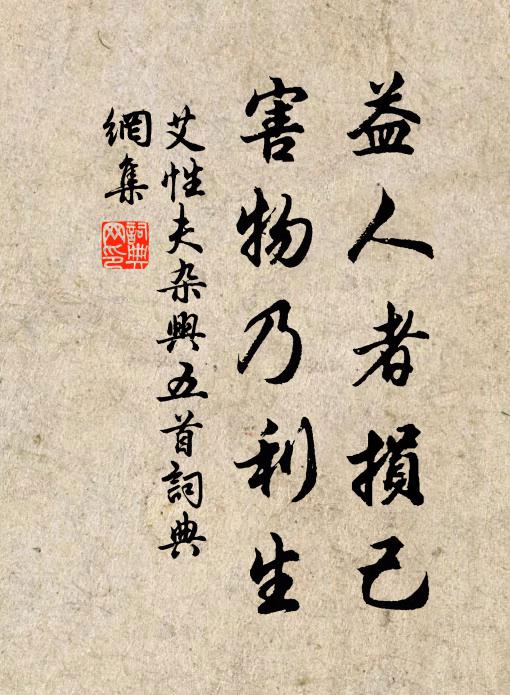 益人者損己
害物乃利生
艾性夫杂興五首詞典
網集
詞典
网印